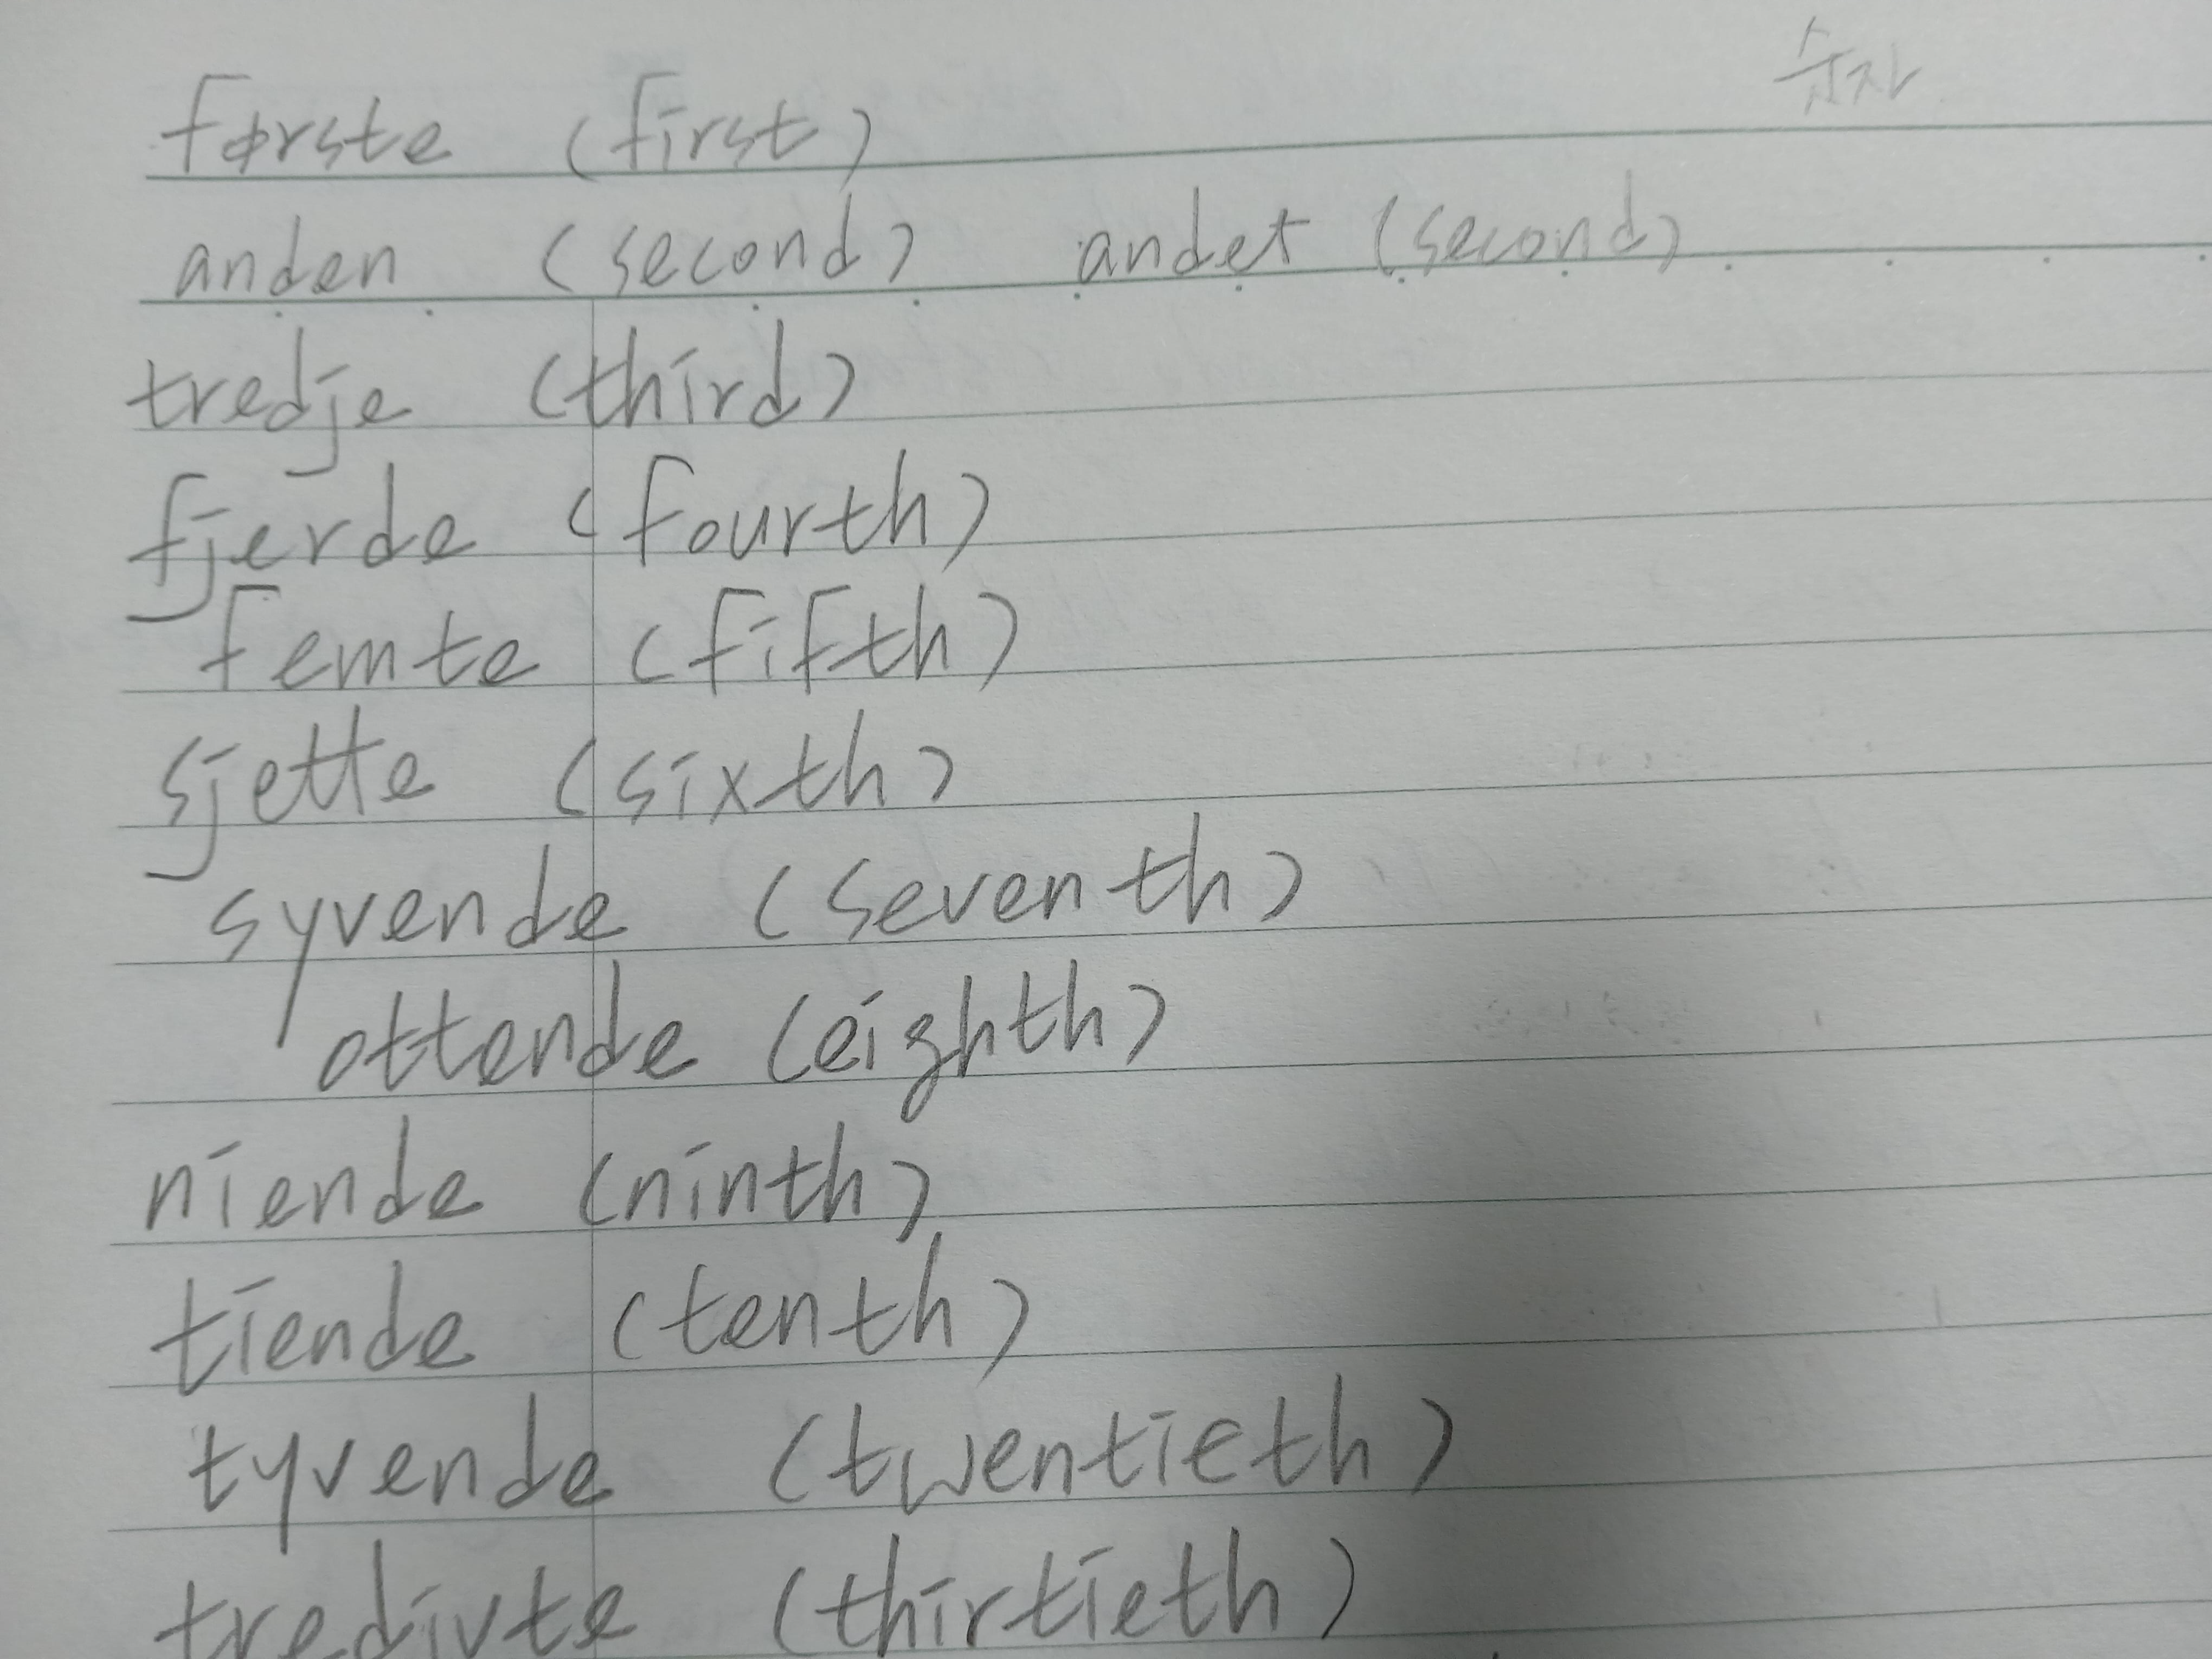 숫자
første (first)
anden (second) andet (second)
tredje (third)
fjerde (fourth)
femte (fifth)
sjette (sixth)
syvende (seventh)
ottende (eighth)
niende (ninth)
tiende (tenth)
tyvende (twentieth)
tredivte (thirtieth)